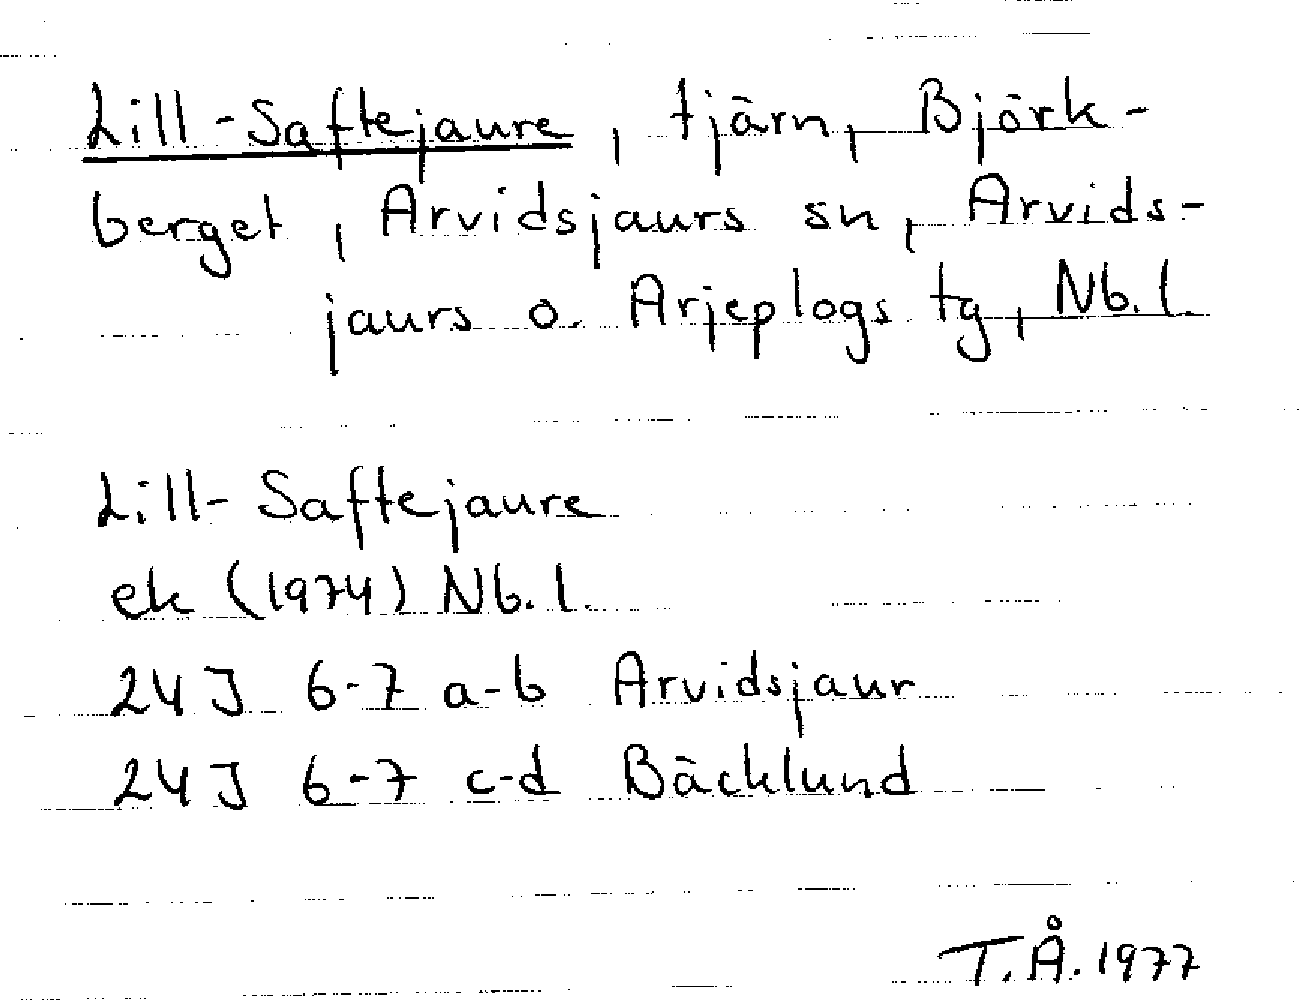 Lill-Saftejaure, tjärn, Björk-
berget, Arvidsjaurs sn, Arvids-
jaurs o. Arjeplogs tg, Nb.l.
Lill-Saftejaure
ek (1974) Nb.l.
24J 6-7 a-b Arvidsjaur
24J 6-7 c-d Bäcklund
T.Å. 1977